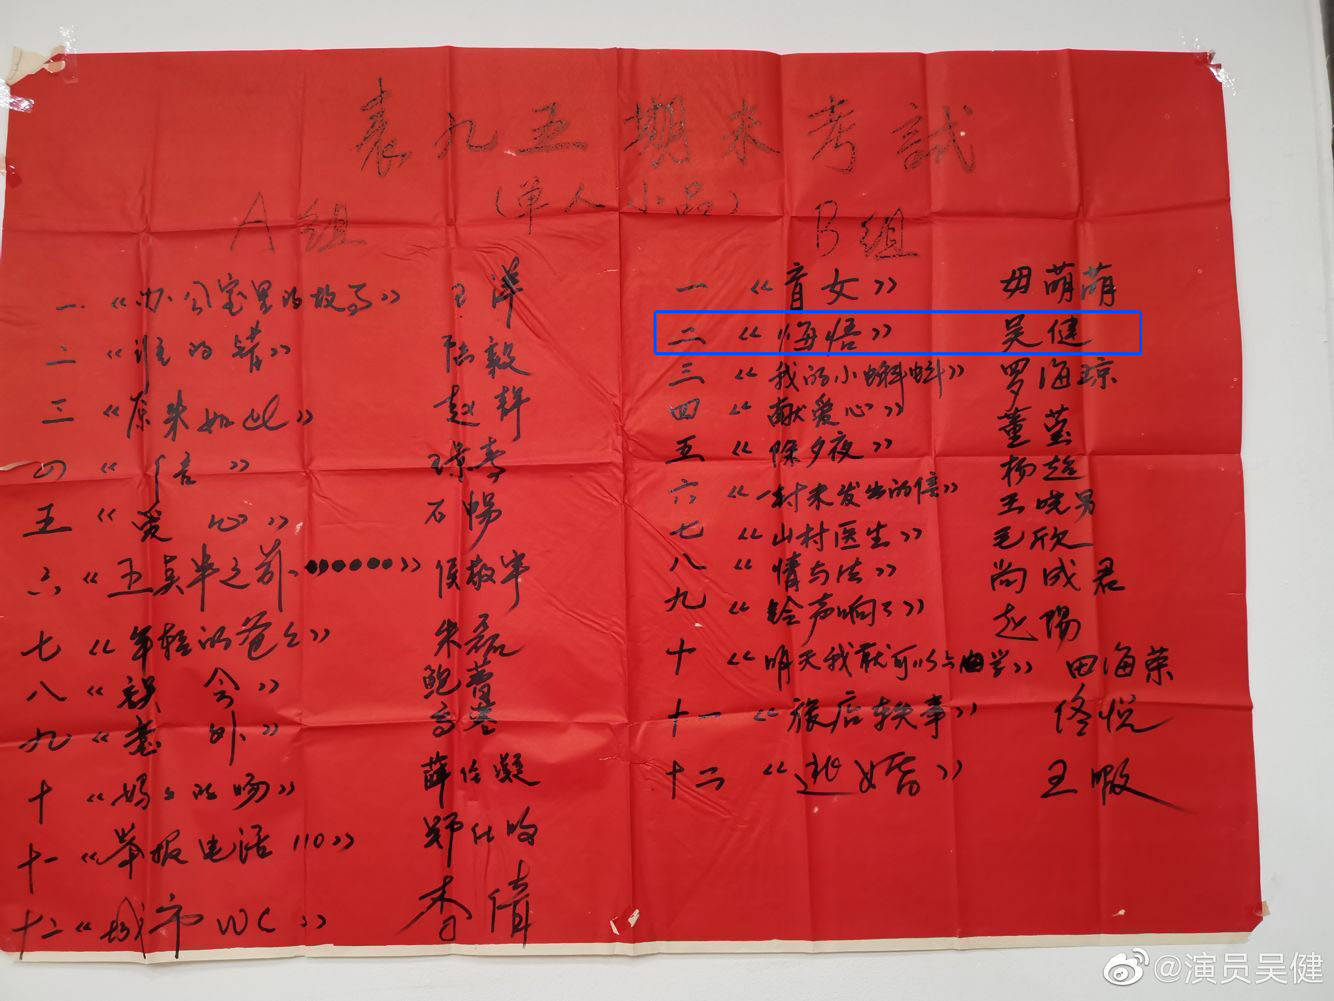 表九五期末考試
(单人小品)
A组
一《办公室里的故事》 王洋
二《谁的错》 陆毅
三《原来如此》 赵
四《信》
五《爱心》 石畅
六《王莫半之前………》 侯敬
七《年轻的爸爸》 朱磊
八《误会》 鲍蕾
九《意外》 高
十《妈妈的吻》 薛佳凝
十一《举报电话110》 郑仕明
十二《城市WC》 李倩
B组
一《盲女》 毋萌萌
二《悔悟》 吴健
三《我的小蝌蚪》 罗海琼
四《献爱心》 董莹
五《除夕夜》 杨超
六《一封未发出的信》 王晓男
七《山村医生》 毛欣
八《情与法》 尚成君
九《铃声响了》 赵陽
十《明天我就可以上学》 田海荣
十一《旅店轶事》 佟悦
十二《逃婚》 王暇
@演员吴健